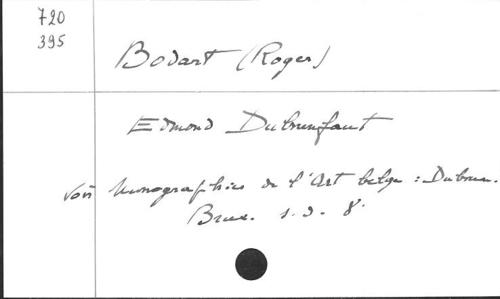 720
395
Bodart (Roger)
Edmond Dubrunfaut
Voir Monographies de l'Art belge : Dubrun.
Brux. s.d. 8°